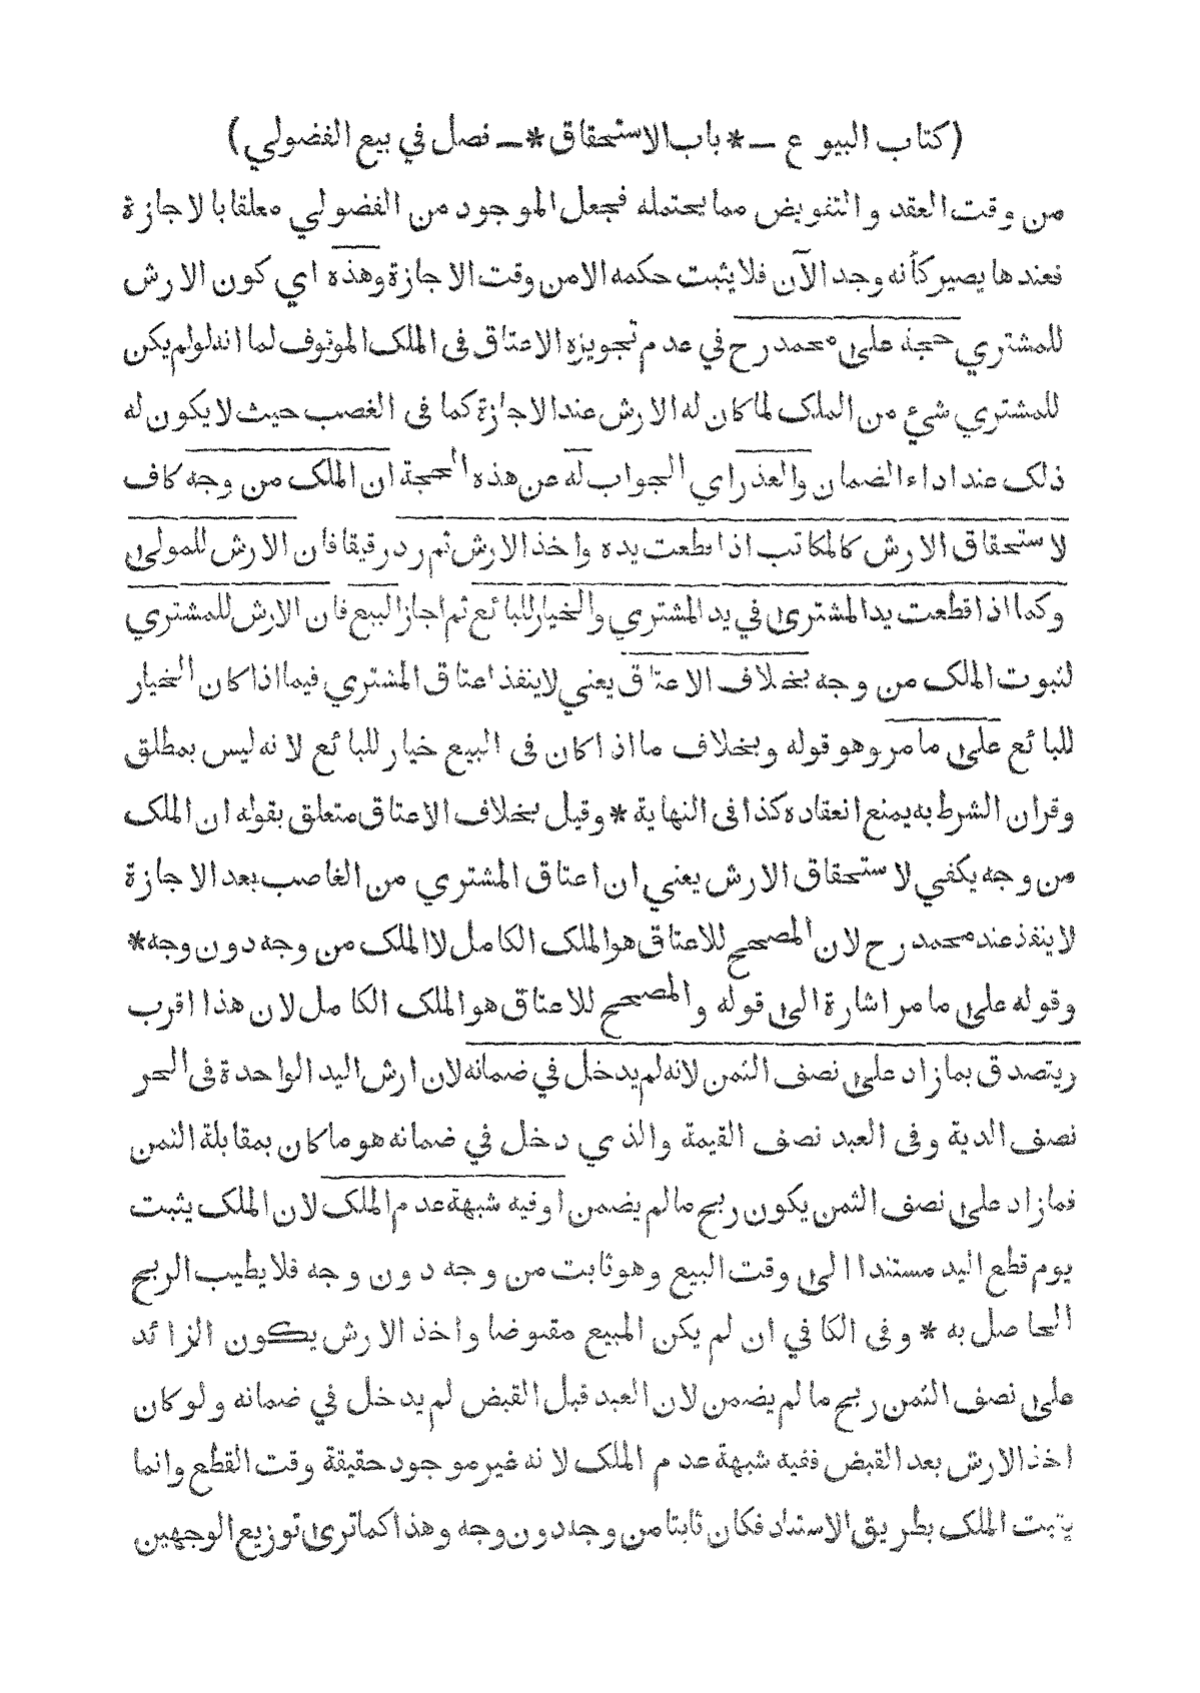 (كتاب البيوع — * باب الاستحقاق * — فصل في بيع الفضولي)
من وقت العقد والتفويض مما يحتمله فجعل الموجود من الفضولي معلقا بالاجازة
فعندها يصير كأنه وجد الآن فلا يثبت حكمه الا من وقت الاجازة وهذه اي كون الارش
للمشتري حجة على محمد رح في عدم تجويزه الاعتاق فى الملك الموقوف لما انه لو لم يكن
للمشتري شيء من الملك لما كان له الارش عند الاجازة كما فى الغصب حيث لا يكون له
ذلك عند اداء الضمان والعذر اي الجواب له عن هذه الحجة ان الملك من وجه كاف
لاستحقاق الارش كالمكاتب اذا قطعت يده واخذ الارش ثم رد رقيقا فان الارش للمولى
وكما اذا قطعت يد المشترى في يد المشتري والخيار للبائع ثم اجاز البيع فان الارش للمشتري
لثبوت الملك من وجه بخلاف الاعتاق يعني لا ينفذ اعتاق المشتري فيما اذا كان الخيار
للبائع على ما مر وهو قوله وبخلاف ما اذا كان فى البيع خيار للبائع لانه ليس بمطلق
وقران الشرط به يمنع انعقاده كذا فى النهاية * وقيل بخلاف الاعتاق متعلق بقوله ان الملك
من وجه يكفي لاستحقاق الارش يعني ان اعتاق المشتري من الغاصب بعد الاجازة
لا ينفذ عند محمد رح لان المصحح للاعتاق هو الملك الكامل لا الملك من وجه دون وجه *
وقوله على ما مر اشارة الى قوله والمصحح للاعتاق هو الملك الكامل لان هذا اقرب
ويتصدق بما زاد على نصف الثمن لانه لم يدخل في ضمانه لان ارش اليد الواحدة فى الحر
نصف الدية وفى العبد نصف القيمة والذي دخل في ضمانه هو ما كان بمقابلة الثمن
فما زاد على نصف الثمن يكون ربح ما لم يضمن او فيه شبهة عدم الملك لان الملك يثبت
يوم قطع اليد مستندا الى وقت البيع وهو ثابت من وجه دون وجه فلا يطيب الربح
الحاصل به * وفى الكافي ان لم يكن المبيع مقبوضا واخذ الارش يكون الزائد
على نصف الثمن ربح ما لم يضمن لان العبد قبل القبض لم يدخل في ضمانه ولو كان
اخذ الارش بعد القبض ففيه شبهة عدم الملك لانه غير موجود حقيقة وقت القطع وانما
يثبت الملك بطريق الاستناد فكان ثابتا من وجه دون وجه وهذا كما ترى توزيع الوجهين